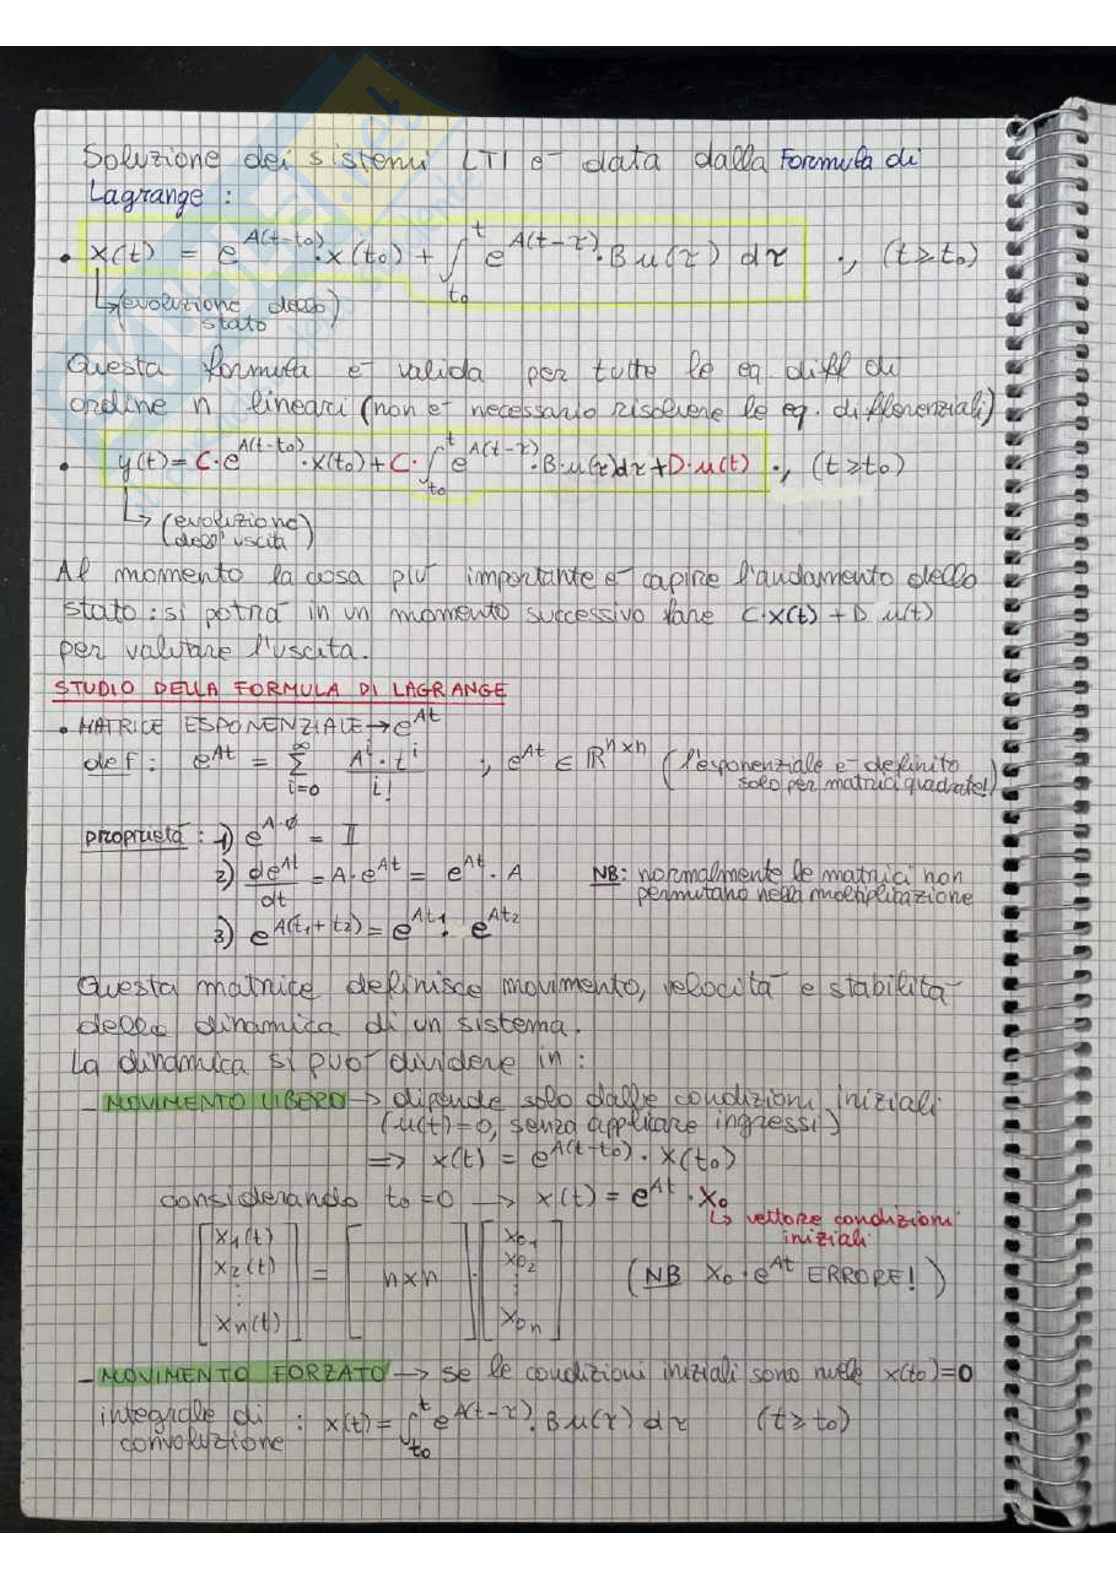 Soluzione dei sistemi LTI è data dalla Formula di
Lagrange :
• x(t) = e^{A(t-t₀)}·x(t₀) + ∫_{t₀}^{t} e^{A(t-τ)}·B u(τ) dτ ; (t≥t₀)
↳ (evoluzione dello
stato)
Questa formula è valida per tutte le eq. diff di
ordine n lineari (non è necessario risolvere le eq. differenziali)
• y(t) = C·e^{A(t-t₀)}·x(t₀) + C·∫_{t₀}^{t} e^{A(t-τ)}·B·u(τ)dτ + D·u(t) ; (t≥t₀)
↳ (evoluzione
dell'uscita)
Al momento la cosa più importante è capire l'andamento dello
stato : si potrà in un momento successivo fare C·x(t) + D u(t)
per valutare l'uscita.
STUDIO DELLA FORMULA DI LAGRANGE
• MATRICE ESPONENZIALE → e^{At}
def : e^{At} = ∑_{i=0}^{∞} A^i · t^i / i! ; e^{At} ∈ ℝ^{n×n} (l'esponenziale è definito
solo per matrici quadrate!)
proprietà : 1) e^{A·0} = I
2) de^{At}/dt = A·e^{At} = e^{At}·A NB: normalmente le matrici non
permutano nella moltiplicazione
3) e^{A(t₁+t₂)} = e^{At₁} · e^{At₂}
Questa matrice definisce movimento, velocità e stabilità
della dinamica di un sistema.
La dinamica si può dividere in :
- MOVIMENTO LIBERO → dipende solo dalle condizioni iniziali
(u(t)=0, senza applicare ingressi)
⇒ x(t) = e^{A(t-t₀)} · x(t₀)
considerando t₀=0 → x(t) = e^{At} · x₀
↳ vettore condizioni
iniziali
[x₁(t) x₂(t) ⋮ xₙ(t)] = [n×n] · [x₀₁ x₀₂ ⋮ x₀ₙ] (NB x₀·e^{At} ERRORE!)
- MOVIMENTO FORZATO → se le condizioni iniziali sono nulle x(t₀)=0
integrale di
convoluzione : x(t) = ∫_{t₀}^{t} e^{A(t-τ)}·B u(τ) dτ (t≥t₀)